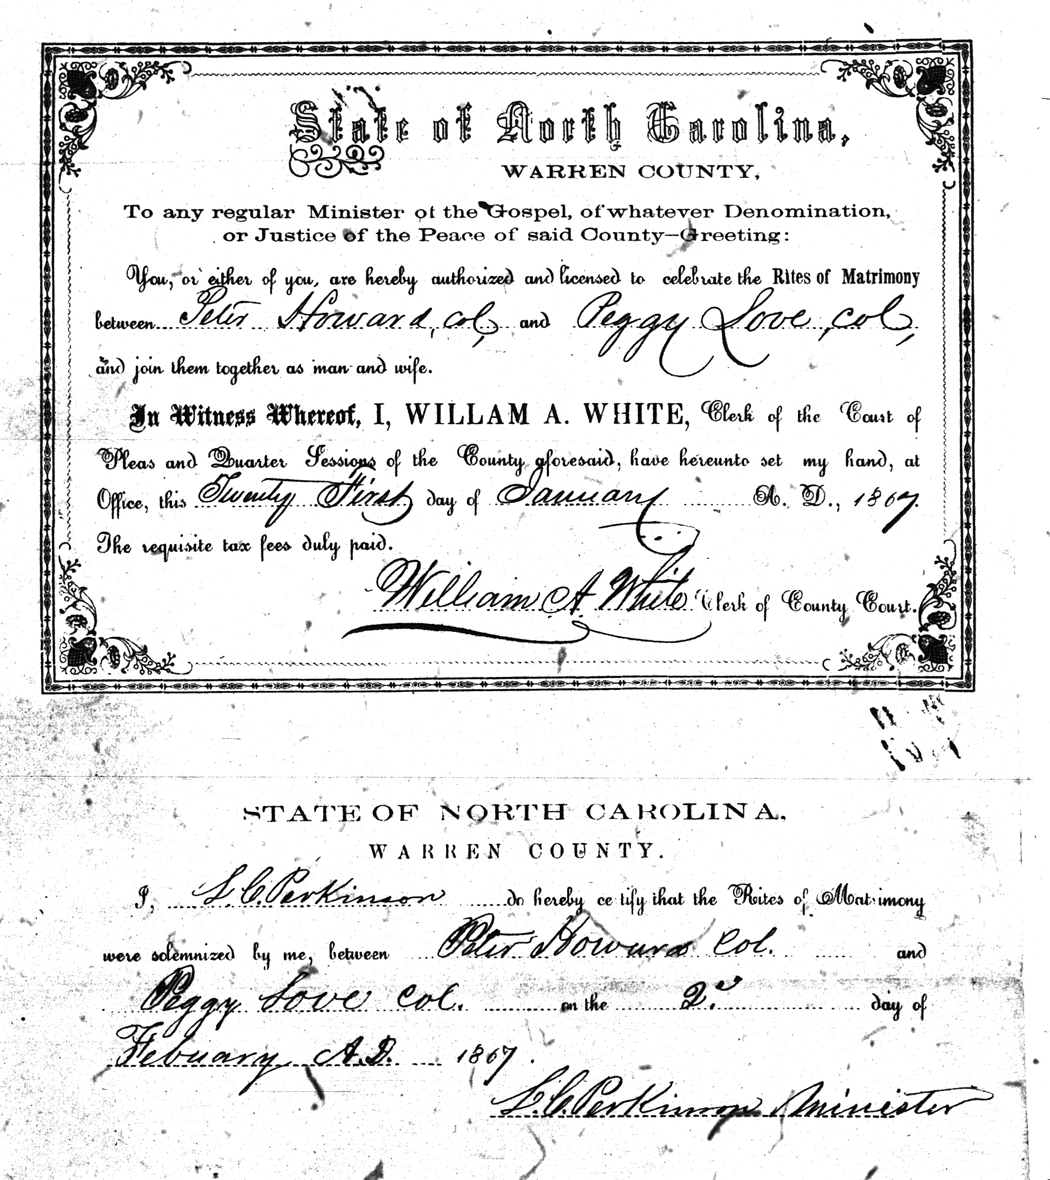 State of North Carolina,
WARREN COUNTY,
To any regular Minister of the Gospel, of whatever Denomination,
or Justice of the Peace of said County—Greeting:
You, or either of you, are hereby authorized and licensed to celebrate the Rites of Matrimony
between Peter Howard, col, and Peggy Love, col,
and join them together as man and wife.
In Witness Whereof, I, WILLAM A. WHITE, Clerk of the Court of
Pleas and Quarter Sessions of the County aforesaid, have hereunto set my hand, at
Office, this Twenty First day of January A. D., 1867.
The requisite tax fees duly paid.
William A. White Clerk of County Court.
STATE OF NORTH CAROLINA,
WARREN COUNTY.
I, L. C. Perkinson do hereby certify that the Rites of Matrimony
were solemnized by me, between Peter Howard Col. and
Peggy Love Col. on the 2d day of
Febuary A.D. 1867.
L. C. Perkinson Minister